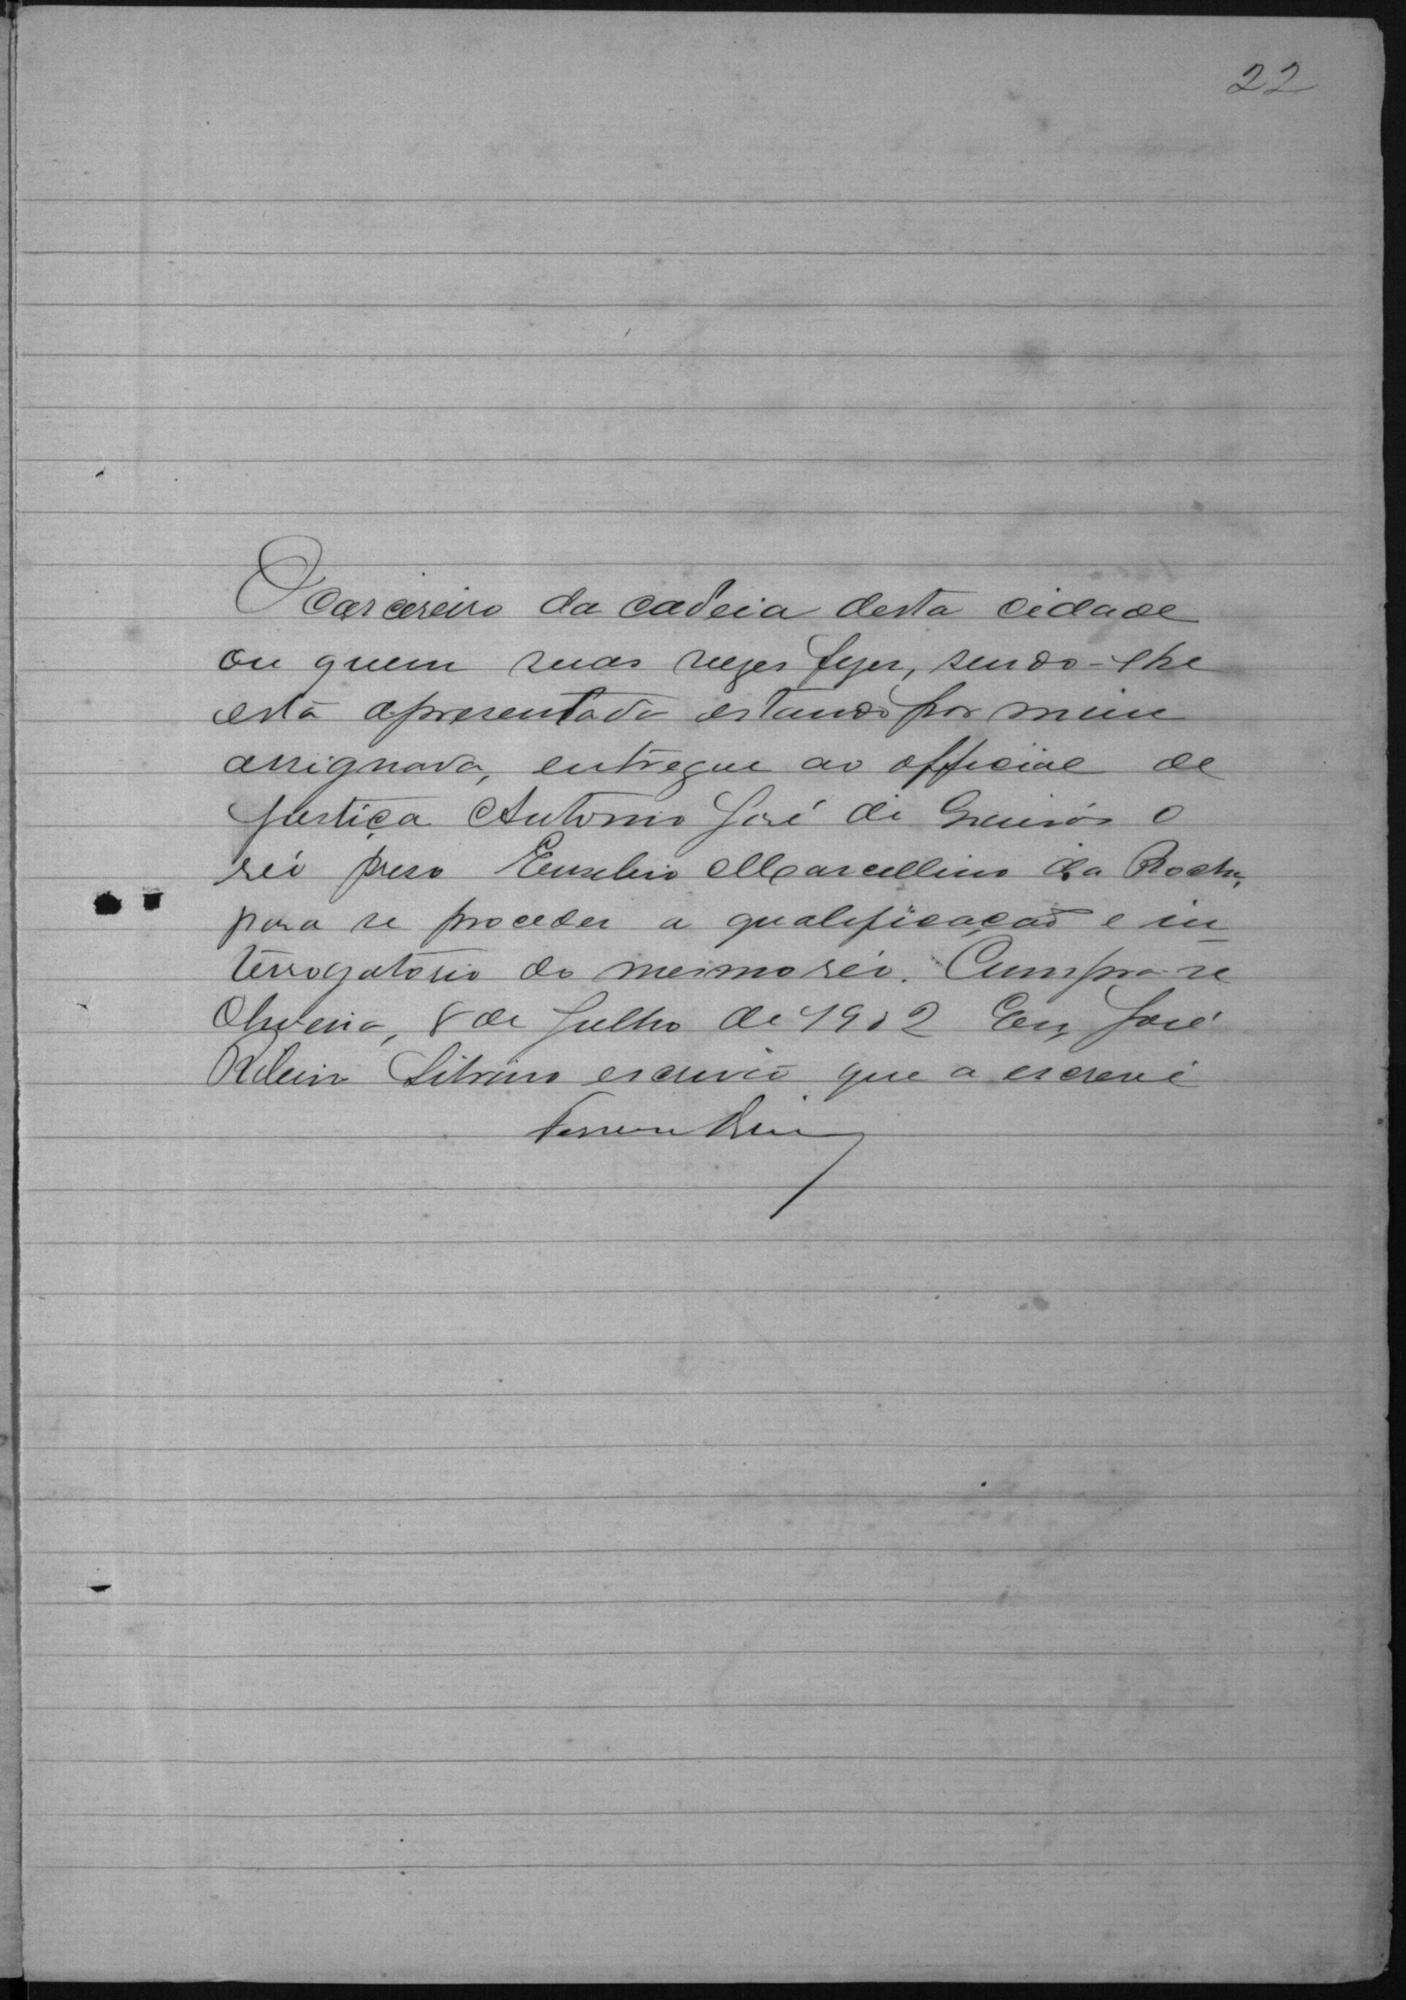 22
O carcereiro da cadeia desta cidade
ou quem suas vezes fizer, sendo-lhe
esta apresentada estando por mim
assignada, entregue ao official de
justiça Antonio José de Queirós o
réo preso Euzebio Marcellino da Rocha,
para se proceder a qualificação e in
terrogatorio do mesmo réo. Cumpra-se
Oliveira, 8 de Julho de 1902 Eu, José
Ribeiro escrivão que a escrevi